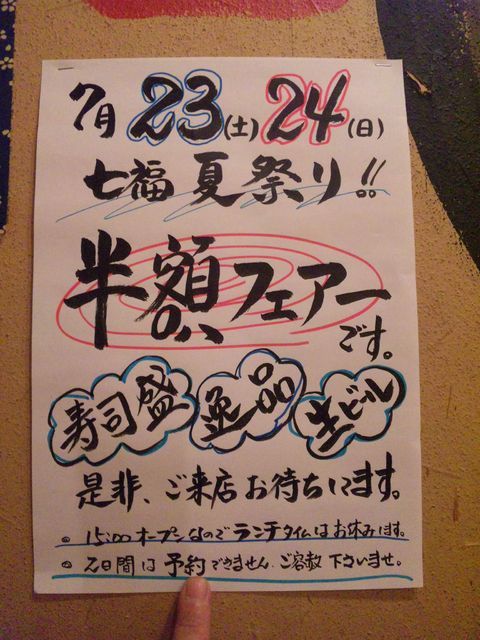 7月23(土)24(日)
七福夏祭り!!
半額フェアー
です。
寿司盛 逸品 生ビール
是非、ご来店お待ちしてます。
。15:00オープンなのでランチタイムはお休みます。
。2日間は予約できません。ご容赦下さいませ。